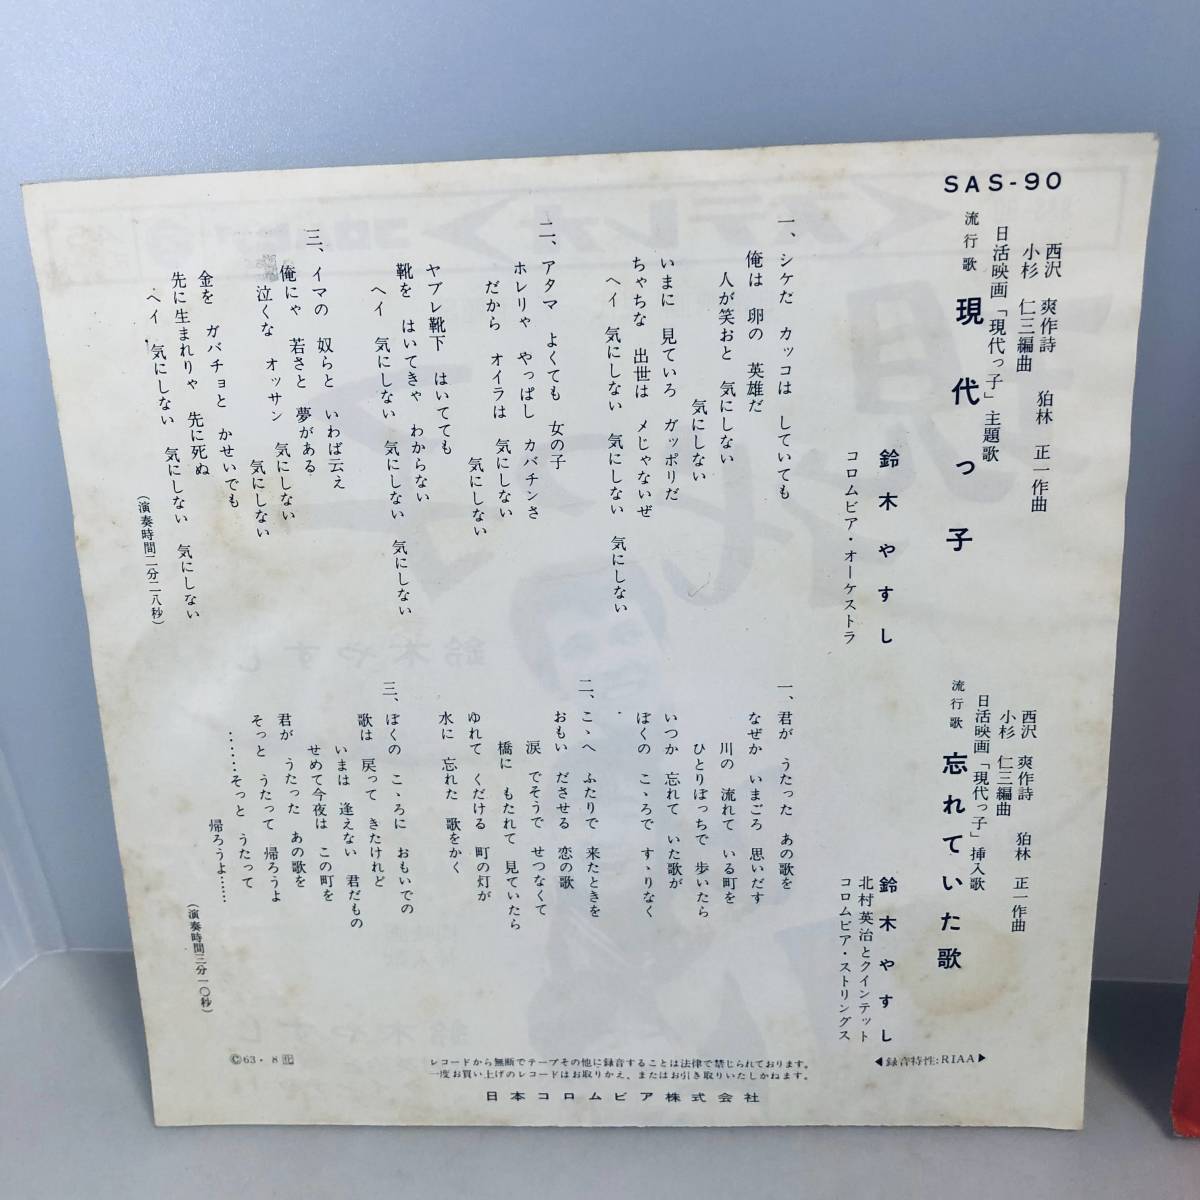 SAS-90
西沢 爽作詩 狛林 正一作曲
小杉 仁三編曲
日活映画「現代っ子」主題歌
流行歌 現代っ子
鈴木やすし
コロムビア・オーケストラ
一、シケた カッコは していても
俺は 卵の 英雄だ
人が笑おと 気にしない
気にしない
いまに 見ていろ ガッポリだ
ちゃちな 出世は メじゃないぜ
ヘイ 気にしない 気にしない 気にしない
二、アタマ よくても 女の子
ホレりゃ やっぱし カバチンさ
だから オイラは 気にしない
気にしない
ヤブレ靴下 はいてても
靴を はいてきゃ わからない
ヘイ 気にしない 気にしない 気にしない
三、イマの 奴らと いわば云え
俺にゃ 若さと 夢がある
泣くな オッサン 気にしない
気にしない
金を ガバチョと かせいでも
先に生まれりゃ 先に死ぬ
ヘイ 気にしない 気にしない 気にしない
(演奏時間二分二八秒)
西沢 爽作詩 狛林 正一作曲
小杉 仁三編曲
日活映画「現代っ子」挿入歌
流行歌 忘れていた歌
鈴木やすし
北村英治とクインテット
コロムビア・ストリングス
一、君が うたった あの歌を
なぜか いまごろ 思いだす
川の 流れて いる町を
ひとりぼっちで 歩いたら
いつか 忘れて いた歌が
ぼくの こゝろで すゝりなく
二、こゝへ ふたりで 来たときを
おもい ださせる 恋の歌
涙 でそうで せつなくて
橋に もたれて 見ていたら
ゆれて くだける 町の灯が
水に 忘れた 歌をかく
三、ぼくの こゝろに おもいでの
歌は 戻って きたけれど
いまは 逢えない 君だもの
せめて今夜は この町を
君が うたった あの歌を
そっと うたって 帰ろうよ
……そっと うたって
帰ろうよ……
(演奏時間三分一〇秒)
◀録音特性:RIAA▶
レコードから無断でテープその他に録音することは法律で禁じられております。
一度お買い上げのレコードはお取りかえ、またはお引き取りいたしかねます。
©63・8
日本コロムビア株式会社